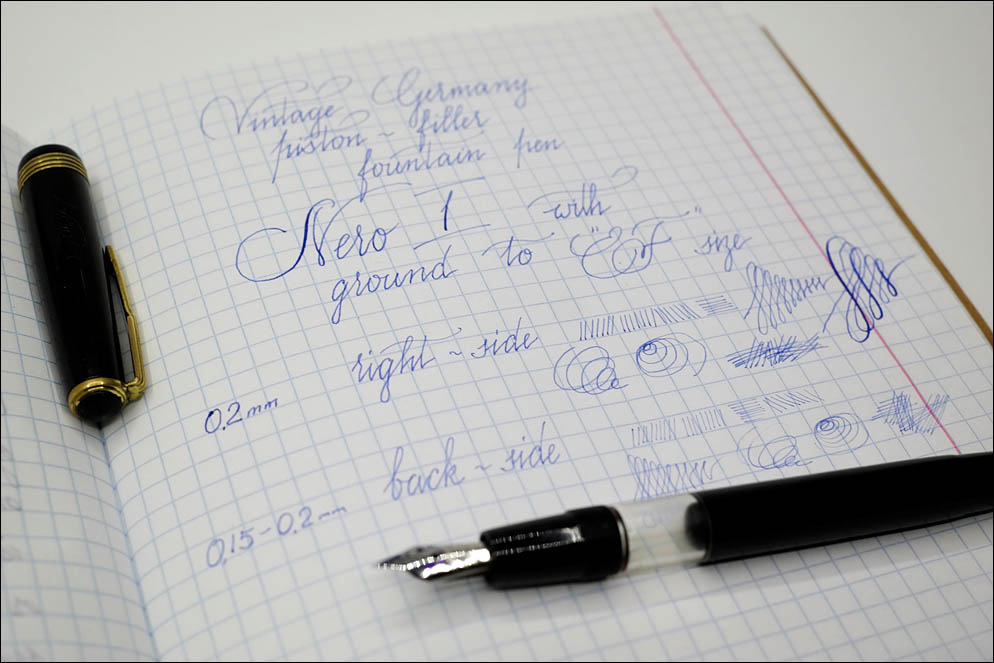 Vintage Germany
piston ~ filler
fountain pen
Nero 1 with
ground to "EF" size
right ~ side
0.2 mm
back ~ side
0,15 - 0.2 mm